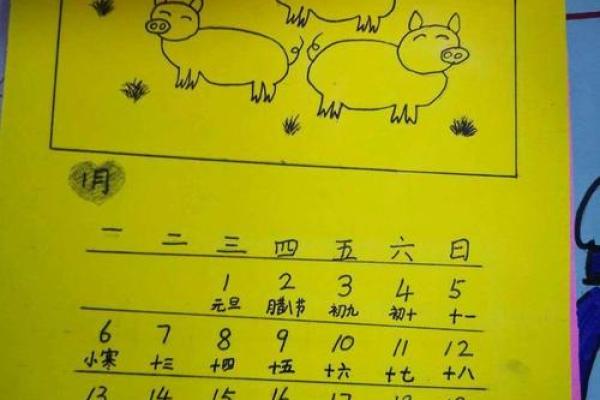 1月
一 二 三 四 五 六 日
1 2 3 4 5
元旦 腊八节 初九 初十 十一
6 7 8 9 10 11 12
小寒 十三 十四 十五 十六 十七 十八
13 14 15 16 17 18 19